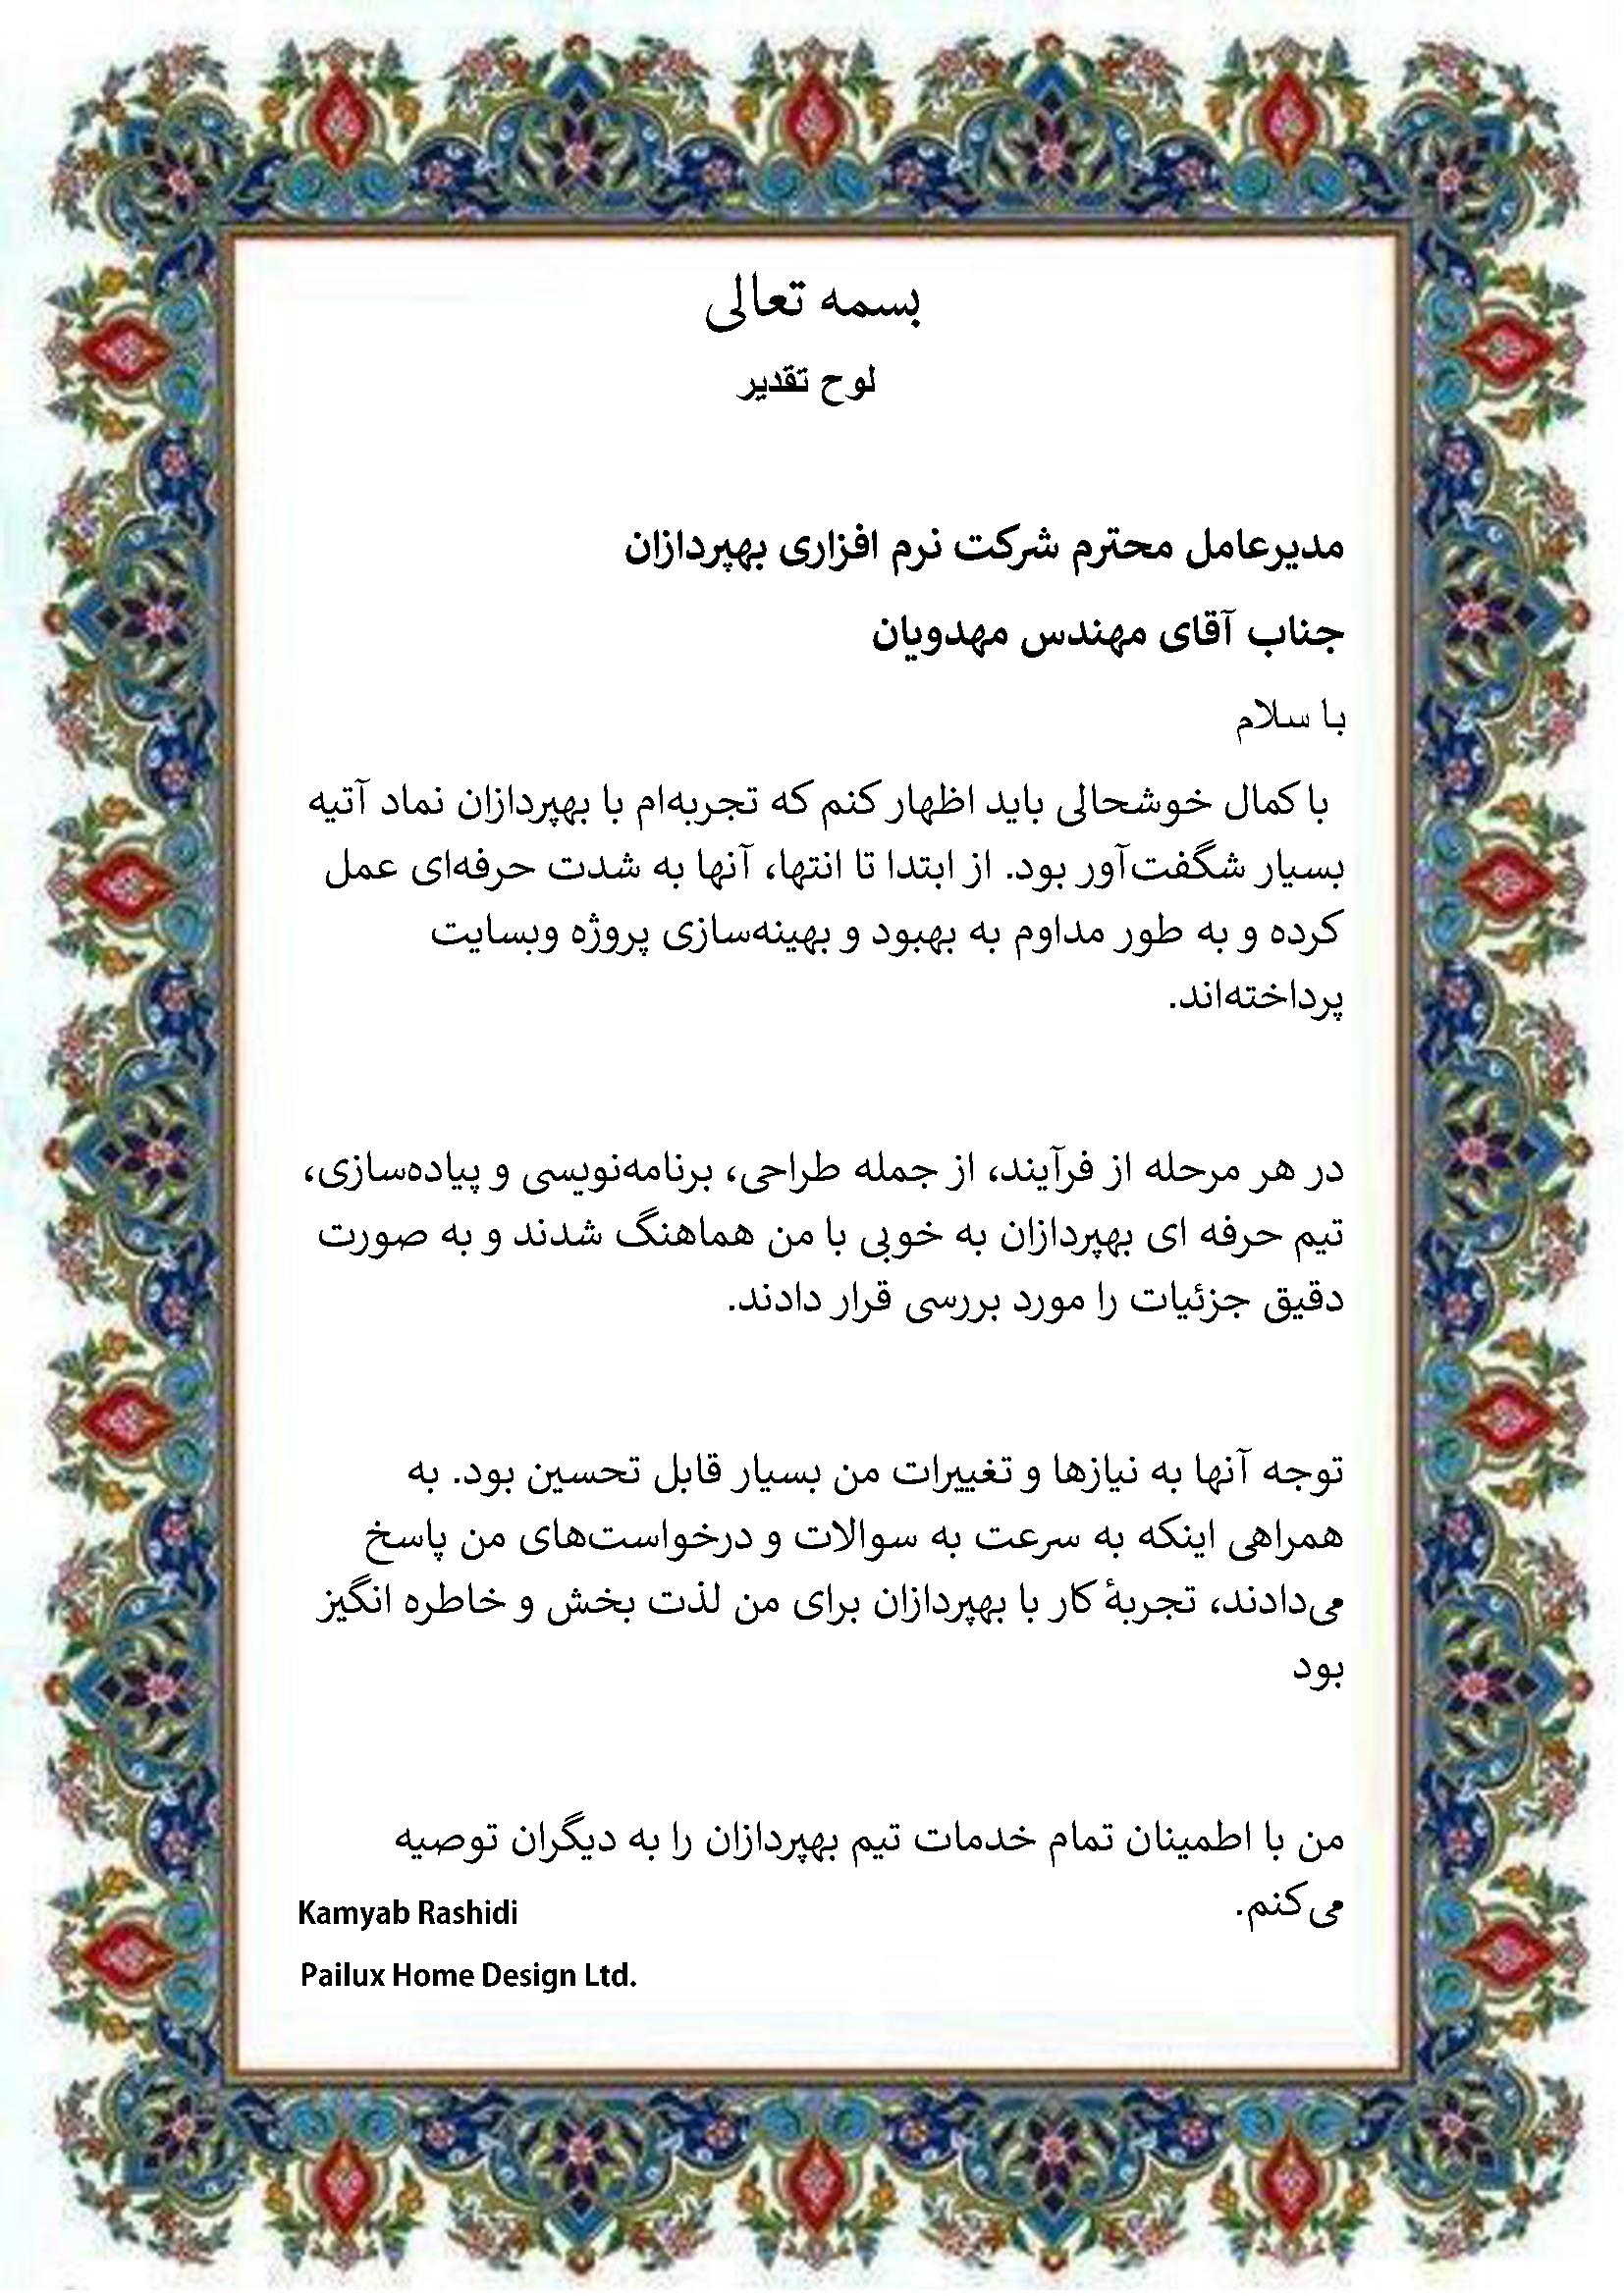 بسمه تعالی
لوح تقدیر
مدیرعامل محترم شرکت نرم افزاری بهپردازان
جناب آقای مهندس مهدویان
با سلام
با کمال خوشحالی باید اظهار کنم که تجربه‌ام با بهپردازان نماد آتیه
بسیار شگفت‌آور بود. از ابتدا تا انتها، آنها به شدت حرفه‌ای عمل
کرده و به طور مداوم به بهبود و بهینه‌سازی پروژه وبسایت
پرداخته‌اند.
در هر مرحله از فرآیند، از جمله طراحی، برنامه‌نویسی و پیاده‌سازی،
تیم حرفه ای بهپردازان به خوبی با من هماهنگ شدند و به صورت
دقیق جزئیات را مورد بررسی قرار دادند.
توجه آنها به نیازها و تغییرات من بسیار قابل تحسین بود. به
همراهی اینکه به سرعت به سوالات و درخواست‌های من پاسخ
می‌دادند، تجربهٔ کار با بهپردازان برای من لذت بخش و خاطره انگیز
بود
من با اطمینان تمام خدمات تیم بهپردازان را به دیگران توصیه
می‌کنم.
Kamyab Rashidi
Pailux Home Design Ltd.